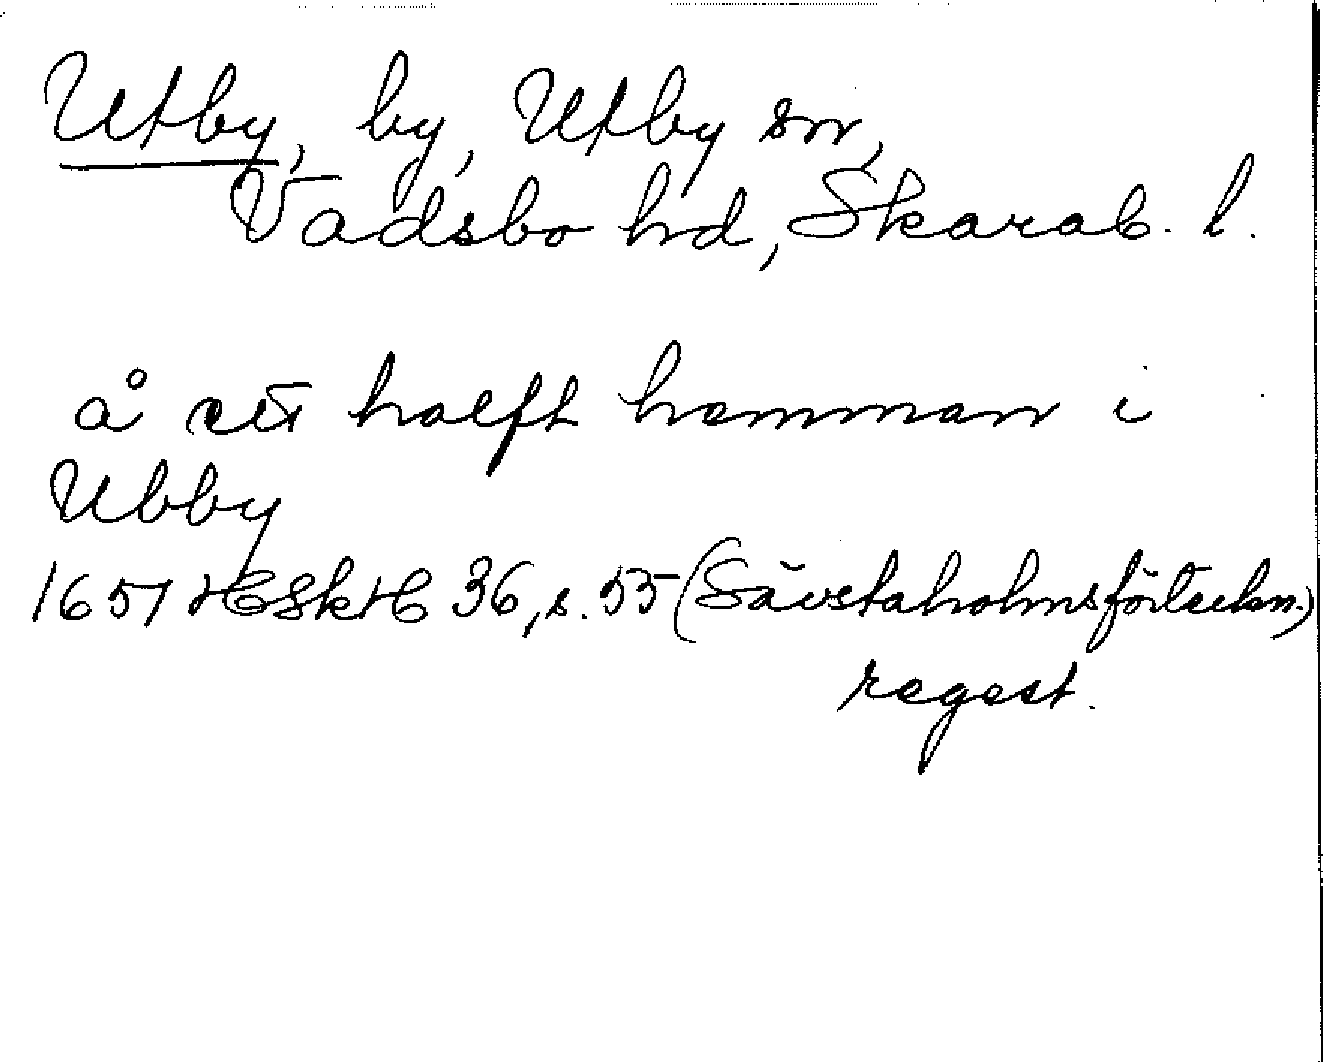 Utby, by, Utby sn,
Vadsbo hd, Skarab. l.
å ett halft hemman i
Ubby
1657 HSkH 36, s. 55 (Sävstaholmsförteckn.)
regest.